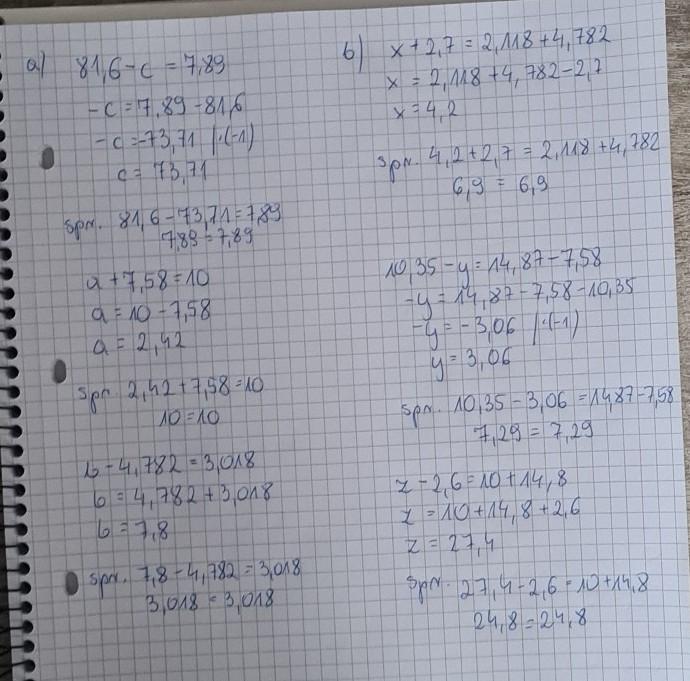 a) 81,6-c = 7,89
-c = 7,89 - 81,6
-c = -73,71 |·(-1)
c = 73,71
spr. 81,6 - 73,71 = 7,89
7,89 = 7,89
a + 7,58 = 10
a = 10 - 7,58
a = 2,42
spr. 2,42 + 7,58 = 10
10 = 10
b - 4,782 = 3,018
b = 4,782 + 3,018
b = 7,8
spr. 7,8 - 4,782 = 3,018
3,018 = 3,018
b) x + 2,7 = 2,118 + 4,782
x = 2,118 + 4,782 - 2,7
x = 4,2
spr. 4,2 + 2,7 = 2,118 + 4,782
6,9 = 6,9
10,35 - y = 14,87 - 7,58
-y = 14,87 - 7,58 - 10,35
-y = -3,06 |·(-1)
y = 3,06
spr. 10,35 - 3,06 = 14,87 - 7,58
7,29 = 7,29
z - 2,6 = 10 + 14,8
z = 10 + 14,8 + 2,6
z = 27,4
spr. 27,4 - 2,6 = 10 + 14,8
24,8 = 24,8